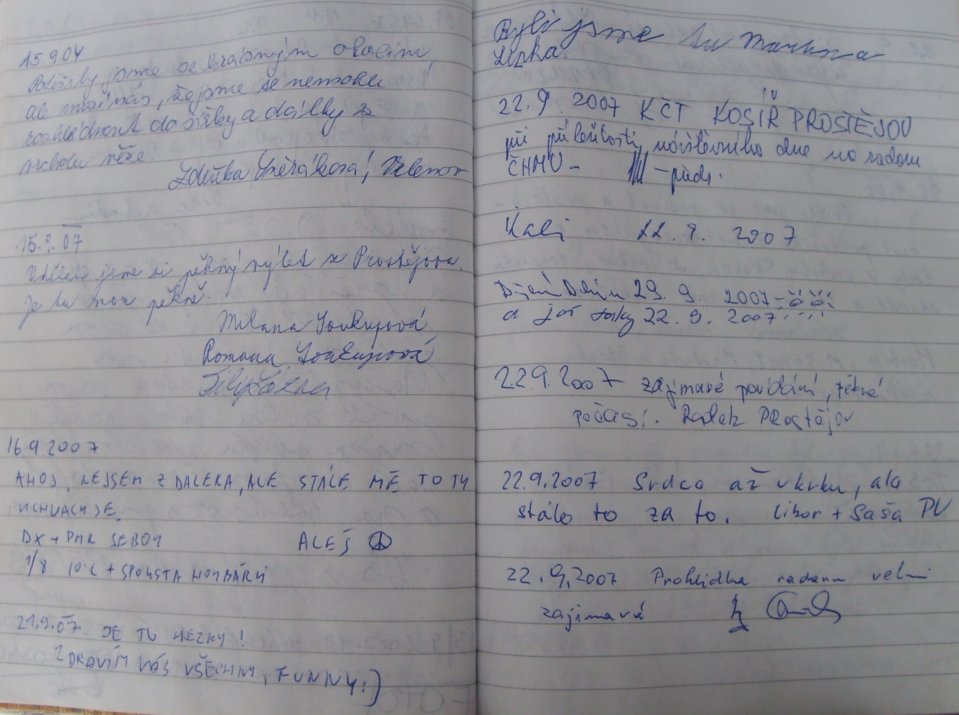 15.9.04
Potěšily jsme se krásným okolím
ale mrzí nás, že jsme se nemohli
rozhlédnout do šířky a dálky z
vrcholu věže.
Zdeňka
15.9.07
Udělali jsme si pěkný výlet z Prostějova.
Je tu moc pěkně.
Milana Soukupová
Romana Soukupová
16.9.2007
AHOJ, NEJSEM Z DALEKA, ALE STÁLE MĚ TO TU
UCHVACUJE.
DX + PMR SEBOU
ALEŠ
1/8 10°C + SPOUSTA KOMÁRŮ
21.9.07 JE TU HEZKY!
ZDRAVÍM VÁS VŠECHNY, FUNNY:)
Byli jsme tu Martina
Lenka.
22.9 2007 KČT KOSÍŘ PROSTĚJOV
při příležitosti návštěvního dne na radaru
ČHMÚ - - předs.
Kali 22.9. 2007
29.9. 2007
a 22.9. 2007
22.9.2007 zajímavé povídání, pěkné
počasí. Radek Prostějov
22.9.2007 Srdce až v krku, ale
stálo to za to. Libor + Saša PV
22.9.2007 Prohlídka radaru velmi
zajímavá